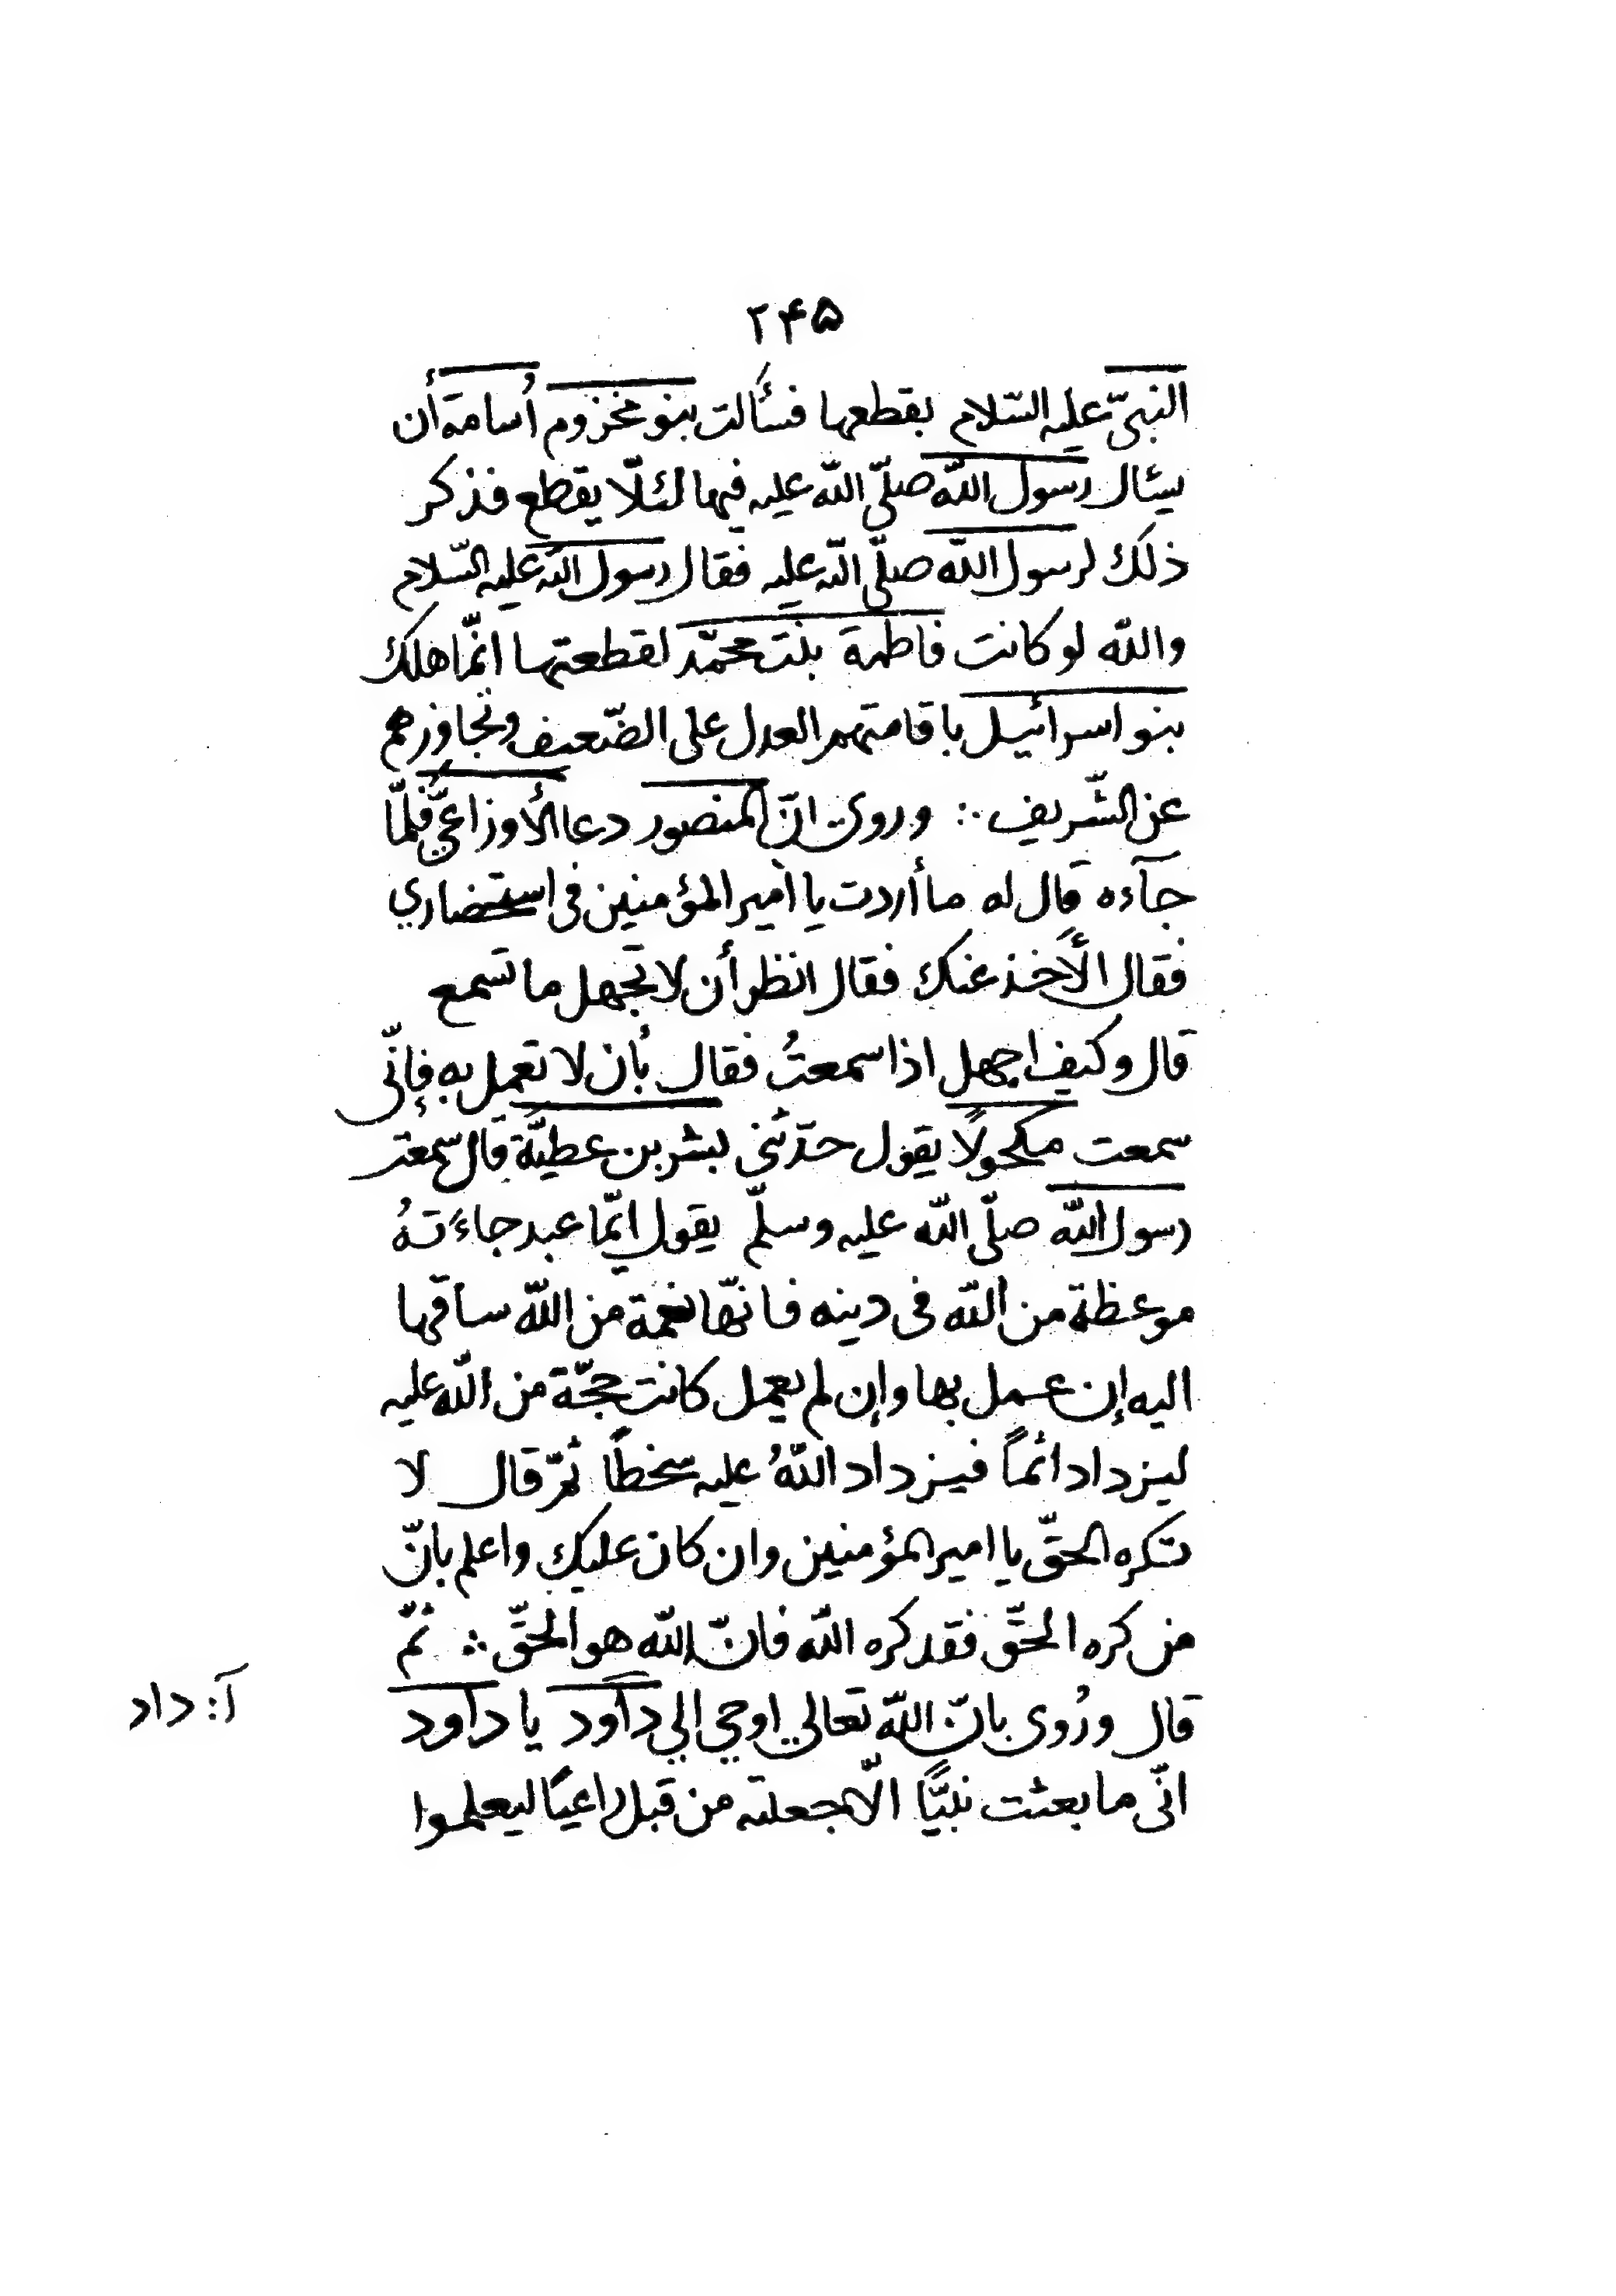 ۲۴۵
النبىّ عليه السّلام بقطعها فسألت بنو مخزوم أُسامةَ أن
يسئال رسول اللّه صلّى اللّه عليه فيها لئلّا يقطع فذكر
ذلك لرسول اللّه صلّى اللّه عليه فقال رسول اللّه عليه السّلام
واللّه لو كانت فاطمةَ بنت محمّد لقطعتها انّما هلك
بنو اسرائيل باقامتهم العدل على الضّعيف وتجاوزهم
عن الشّريف ∴ وروى انّ المنصور دعا الأوزاعىَّ فلمّا
جآءه قال له ما أردت يا أمير المؤمنين فى استحضاري
فقال لأخذ عنك فقال انظر أن لا تجهل ما تسمع
قال وكيف اجهل اذا سمعتُ فقال بأن لا تعمل به فإنّى
سمعت مكحولًا يقول حدّثنى بشر بن عطيّة قال سمعت
رسول اللّه صلّى اللّه عليه وسلّم يقول ايّما عبد جاءَتهُ
موعظة من اللّه فى دينه فانّها نعمة من اللّه ساقها
اليه إن عمل بها وإن لم يعمل كانت حجّة من اللّه عليه
ليزداد اثماً فيزداد اللّهُ عليه سخطًا ثمّ قال لا
تكره الحقّ يا امير المؤمنين وان كان عليك واعلم بانّ
من كره الحقّ فقد كره اللّه فانّ اللّه هو الحقّ ∴ ثمّ
قال ورُوى بانّ اللّه تعالى اوحي الي داود يا داود
آ: داد
انّى ما بعثت نبيًّا الّا جعلته من قبل راعيًا ليعلموا